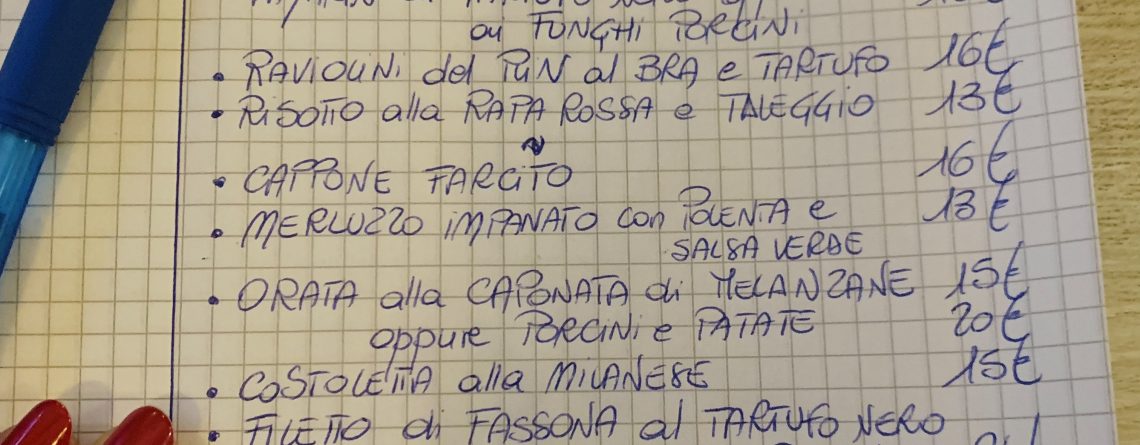 ai FUNGHI PORCINI
• RAVIOLINI del PLIN al BRA e TARTUFO 16€
• RISOTTO alla RAPA ROSSA e TALEGGIO 13€
~
• CAPPONE FARCITO 16€
• MERLUZZO IMPANATO con POLENTA e 13€
SALSA VERDE
• ORATA alla CAPONATA di MELANZANE 15€
oppure PORCINI e PATATE 20€
• COSTOLETTA alla MILANESE 15€
• FILETTO di FASSONA al TARTUFO NERO